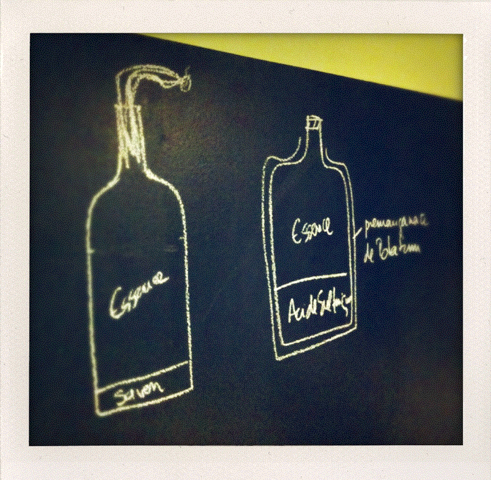 Essence
Savon
Essence
Acide Sulfurique
de Potassium